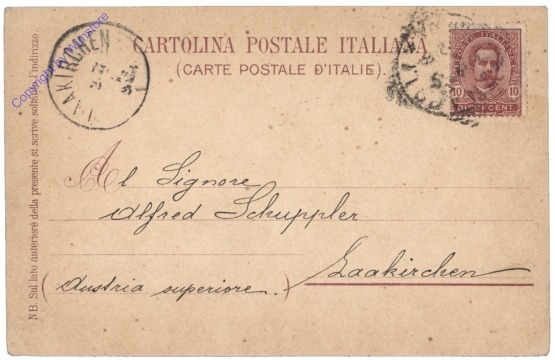 CARTOLINA POSTALE ITALIANA
(CARTE POSTALE D'ITALIE)
POSTE ITALIANE
10 10
DIECI CENT.
LAAKIRCHEN
Copyright by
Al Signore
Alfred Schuppler
Laakirchen
(Austria superiore.)
NB. Sul lato anteriore della presente si scrive soltanto l'indirizzo.